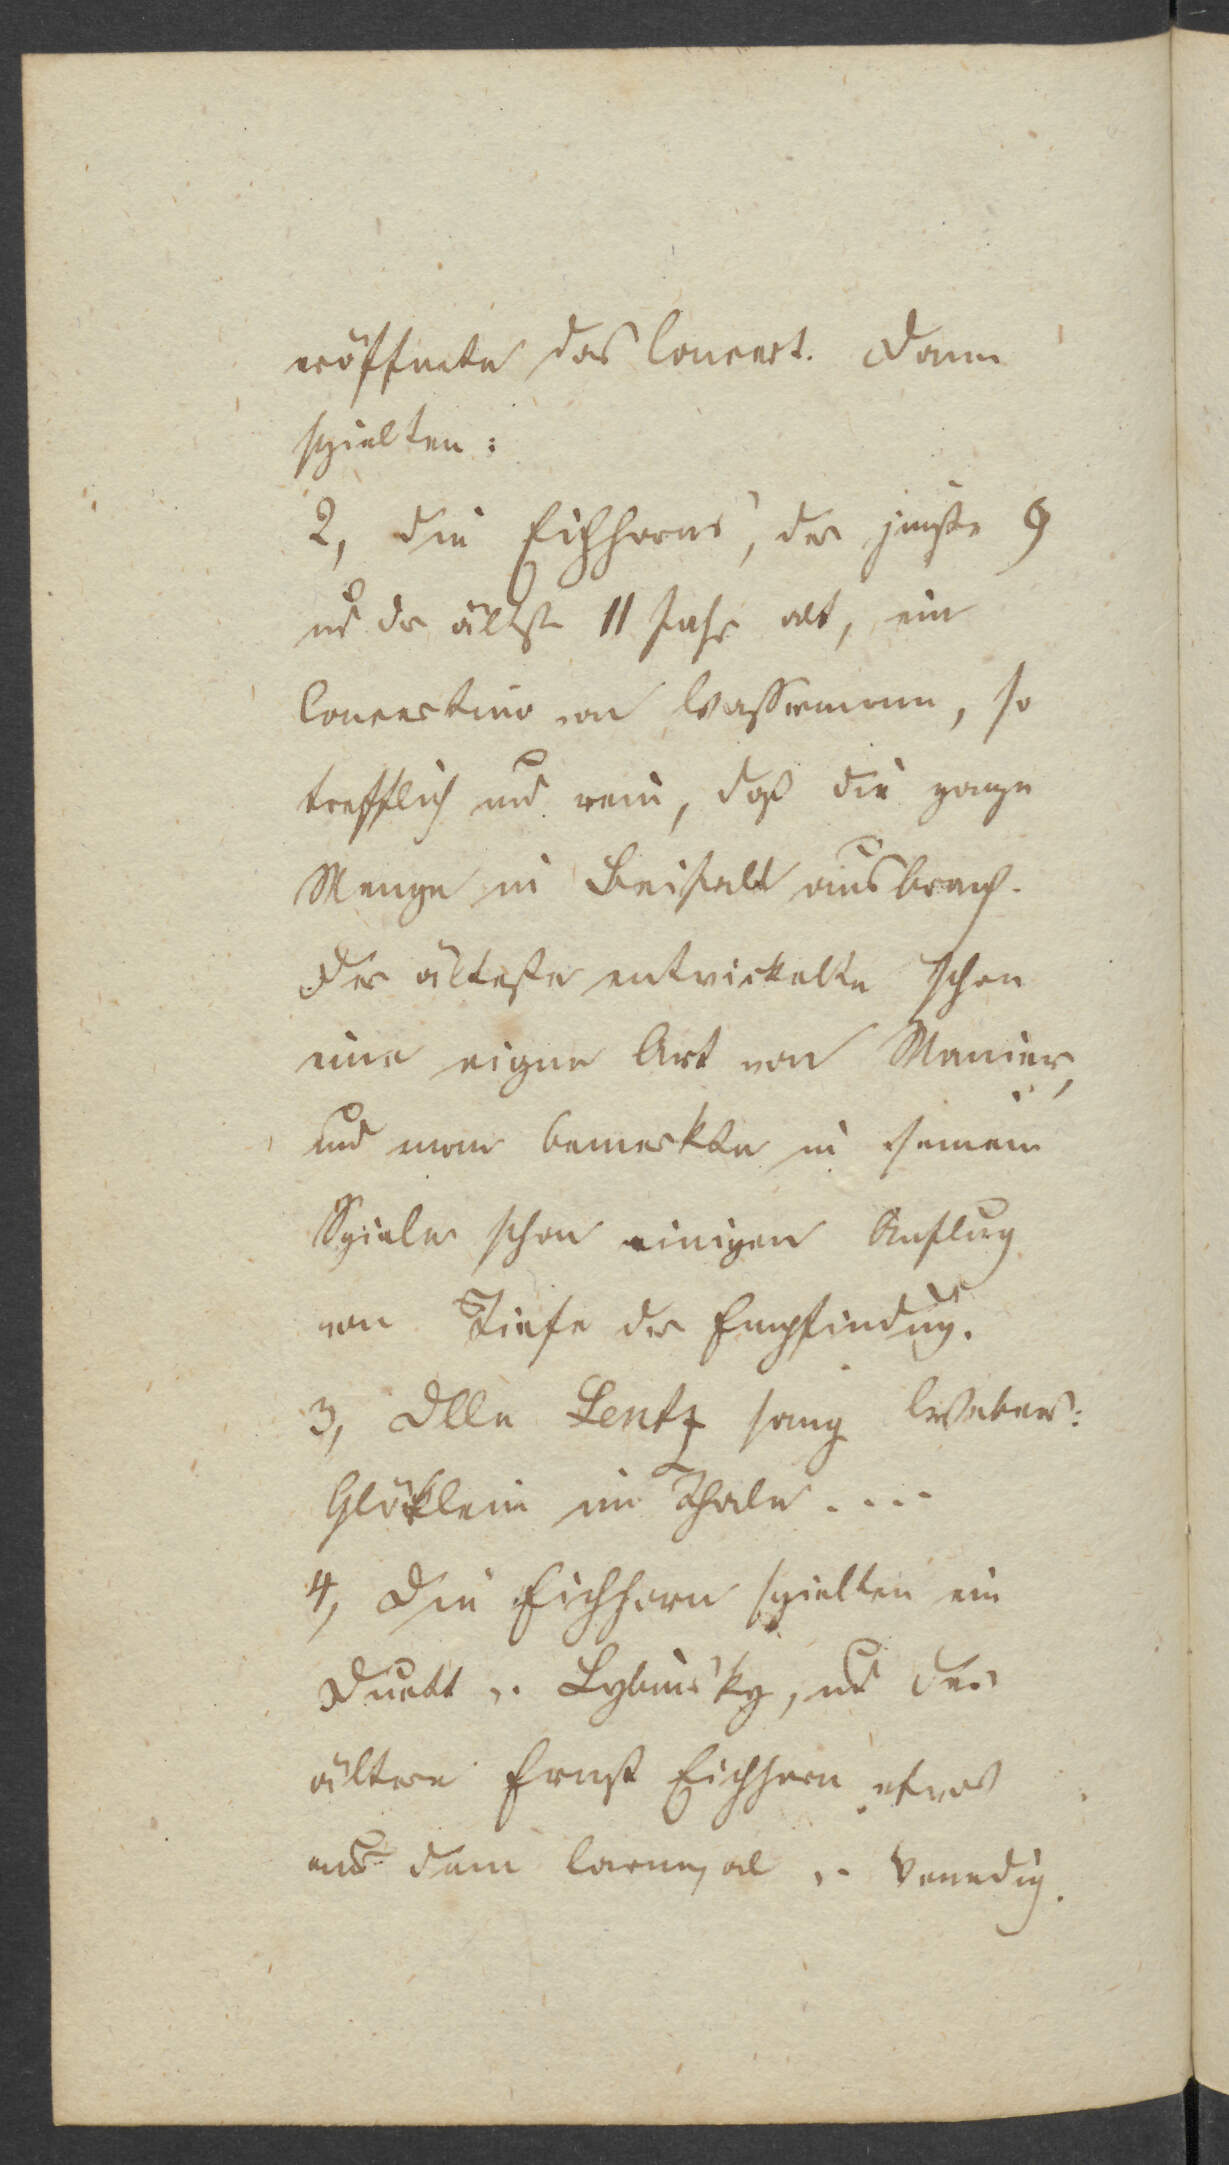 eröffnete das Concert. Dann
spielten:
2, die Eichhorns, der jüngste 9
und der älteste 11 Jahr alt, ein
Concertino von Wassermann, so
trefflich und rein, daß die ganze
Menge in Beifall ausbrach.
Der älteste entwickelte schon
eine eigne Art von Manier,
und man bemerkte in seinem
Spiele schon einigen Anflug
von Tiefe der Empfindung.
3, Dlle Lentz sang Webers:
Glöklein im Thale ....
4, Die Eichhorn spielten ein
Duett v. Lybinsky, und der
ältere Ernst Eichhorn etwas
aus dem Carneval v. Venedig.